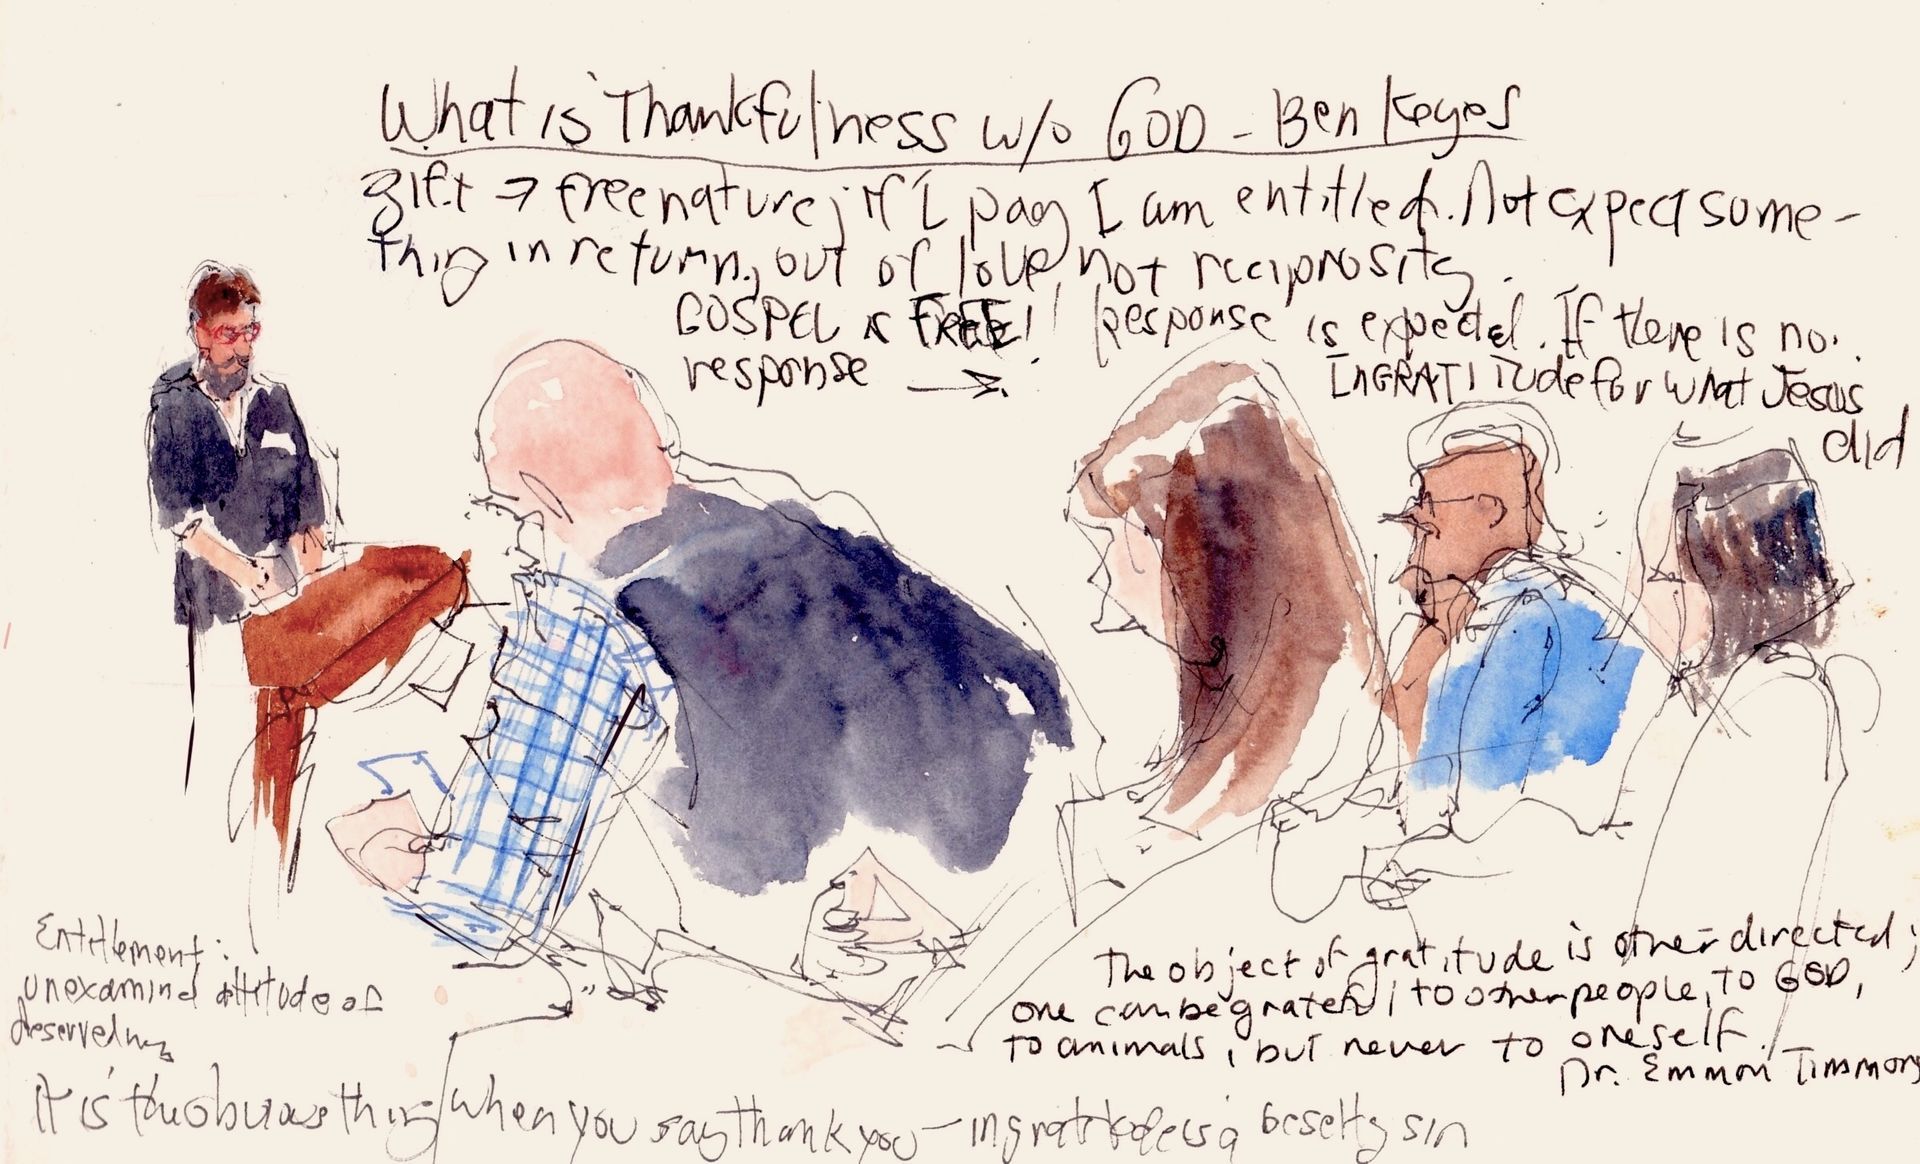 What is Thankfulness w/o GOD - Ben Keyes
gift → free nature; if I pay I am entitled. Not expect some-
thing in return, out of love, not reciprosity.
GOSPEL is FREE!! Response is expected. If there is no
response → INGRATITUDE for what Jesus
did
Entitlement:
unexamind attitude of
deservedng
The object of gratitude is other-directed;
one can be grateful to other people, to GOD,
to animals, but never to oneself.
Dr. Emmon Timmons
It is the obvious thing when you say thank you - ingratitude is a sin